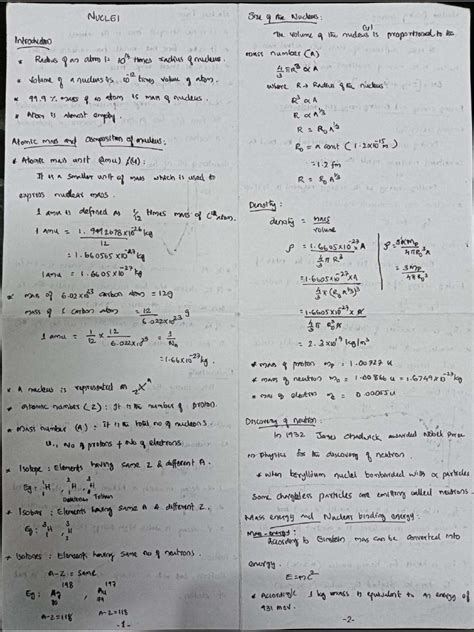 NUCLEI
Introduction
* Radius of an atom is 10⁵ times radius of nucleus.
* Volume of a nucleus is 10⁻¹² times volume of atom.
* 99.9 % mass of an atom is mass of nucleus.
* Atom is almost empty.
Atomic mass and Composition of nucleus:
* Atomic mass unit (amu) (u):
It is a smaller unit of mass which is used to
express nuclear mass.
1 amu is defined as 1/12 times mass of C¹² atom.
1 amu = 1.9992678 × 10⁻²⁶ kg / 12
= 1.66056 × 10⁻²⁷ kg
1 amu = 1.6605 × 10⁻²⁷ kg
* mass of 6.02 × 10²³ carbon atom = 12g
mass of 1 carbon atom = 12 / 6.022 × 10²³ g
1 amu = 1/12 × 12 / 6.022 × 10²³ = 1/N₀
= 1.66 × 10⁻²⁷ kg.
* A nucleus is represented as zXᴬ
* Atomic number (Z): It is the number of proton.
* Mass number (A): It is the total no of nucleons
i.e., No of protons + No of electrons.
* Isotope: Elements having same Z & different A.
Eg: ¹₁H ²₁H ³₁H
Deuterium Tritium
* Isobar: Elements having same A & different Z.
Eg: ³H ³H
* Isotones: Elements having same no of neutrons.
A-Z = same
Eg: 198 Hg 80 197 Au 79
A-Z = 118 A-Z = 118
- 1 -
Size of the Nucleus:
The volume of the nucleus (V) is proportional to the
mass number (A)
4/3 πR³ ∝ A
where R → Radius of the nucleus
R³ ∝ A
R ∝ A^1/3
R = R₀ A^1/3
R₀ = a const (1.2 × 10⁻¹⁵ m)
= 1.2 fm
R = R₀ A^1/3
Density:
density = mass / volume
ρ = 1.6605 × 10⁻²⁷ A / 4/3 π R³
= 1.6605 × 10⁻²⁷ A / 4/3 π (R₀ A^1/3)³
= 1.6605 × 10⁻²⁷ × A / 4/3 π R₀³ A
= 2.3 × 10¹⁷ kg/m³
= 3mp / 4πR₀³
* mass of proton mp = 1.00727 u
* mass of neutron mn = 1.00866 u = 1.6749 × 10⁻²⁷
* mass of electron = 0.00055 u
Discovery of neutron:
In 1932 James Chadwick awarded Nobel Prize
in Physics for the discovery of neutron.
* when beryllium nuclei bombarded with α particles
Some chargeless particles are emitting called neutrons.
Mass energy and Nuclear binding energy:
Mass-energy:
According to Einstein mass can be converted into
energy.
E = mc²
* According 1 kg mass is equivalent to an energy of
931 MeV
- 2 -